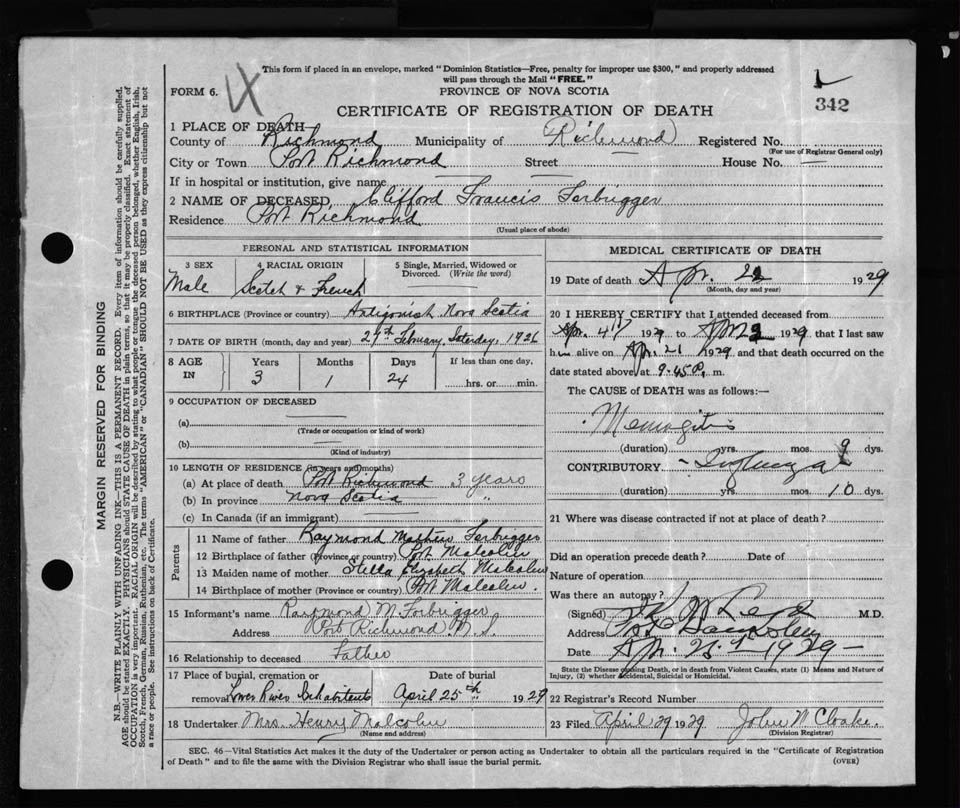 This form if placed in an envelope, marked "Dominion Statistics—Free, penalty for improper use $300," and properly addressed
will pass through the Mail "FREE."
FORM 6.
IX
PROVINCE OF NOVA SCOTIA
342
CERTIFICATE OF REGISTRATION OF DEATH
1 PLACE OF DEATH—
County of Richmond Municipality of Richmond Registered No.
(For use of Registrar General only)
City or Town Port Richmond Street — House No. —
If in hospital or institution, give name — —
2 NAME OF DECEASED Clifford Francis Forbrigger
Residence Port Richmond
(Usual place of abode)
PERSONAL AND STATISTICAL INFORMATION
3 SEX 4 RACIAL ORIGIN 5 Single, Married, Widowed or Divorced. (Write the word)
Male Scotch & French —
6 BIRTHPLACE (Province or country) Antigonish Nova Scotia
7 DATE OF BIRTH (month, day and year) February, Saterday, 1926
8 AGE IN Years Months Days If less than one day,
3 1 24 hrs. or min.
9 OCCUPATION OF DECEASED
(a) —
(Trade or occupation or kind of work)
(b) —
(Kind of industry)
10 LENGTH OF RESIDENCE (in years and months)
(a) At place of death Port Richmond 3 years
(b) In province Nova Scotia "
(c) In Canada (if an immigrant) —
Parents
11 Name of father Raymond Mathew Forbrigger
12 Birthplace of father (Province or country) Port Malcolm
13 Maiden name of mother Stella Elizabeth Malcolm
14 Birthplace of mother (Province or country) Port Malcolm.
15 Informant's name Raymond M. Forbrigger
Address Port Richmond N.S.
16 Relationship to deceased Father
17 Place of burial, cremation or Date of burial
removal Lower River Inhabitants April 25th 1929
18 Undertaker Mrs. Henry Malcolm
(Name and address)
MEDICAL CERTIFICATE OF DEATH
19 Date of death Apr. 22 1929
(Month, day and year)
20 I HEREBY CERTIFY that I attended deceased from
Apr. 4th 1929 to Apr 22 1929 that I last saw
him alive on Apr. 21 1929 and that death occurred on the
date stated above, at 9.45 P. m.
The CAUSE OF DEATH was as follows:—
Meningitis
(duration) yrs. mos. 9 dys.
CONTRIBUTORY Influenza
(duration) yrs. mos. 10 dys.
21 Where was disease contracted if not at place of death?
Did an operation precede death? Date of
Nature of operation
Was there an autopsy?
(Signed) M.D.
Address Port Hawkesbury
Date Apr. 1929
State the Disease causing Death, or in death from Violent Causes, state (1) Means and Nature of
Injury, (2) whether Accidental, Suicidal or Homicidal.
22 Registrar's Record Number
23 Filed April 29 1929 John W Cloake.
(Division Registrar)
SEC. 46—Vital Statistics Act makes it the duty of the Undertaker or person acting as Undertaker to obtain all the particulars required in the "Certificate of Registration
of Death" and to file the same with the Division Registrar who shall issue the burial permit. (OVER)
MARGIN RESERVED FOR BINDING
N.B.—WRITE PLAINLY WITH UNFADING INK—THIS IS A PERMANENT RECORD. Every item of information should be carefully supplied.
AGE should be stated EXACTLY. PHYSICIANS should STATE CAUSE OF DEATH in plain terms, so that it may be properly classified. Exact statement of
OCCUPATION is very important. RACIAL ORIGIN will be described by stating to what people or tongue the deceased person belonged, whether English, Irish,
Scotch, French, German, Russian, Ruthenian, etc. The terms "AMERICAN" or "CANADIAN" SHOULD NOT BE USED as they express citizenship but not
a race or people. See instructions on back of Certificate.